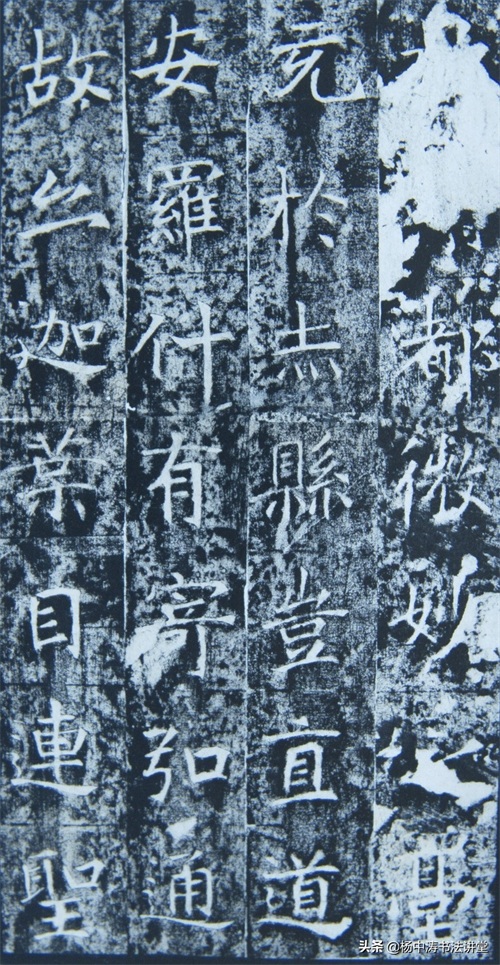 都微妙
元於赤縣豈直道
安羅什有寄弘通
故迦葉目連聖
头条 @杨中涛书法讲堂